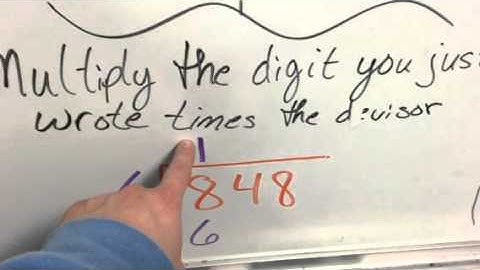 Multiply the digit you just
wrote times the divisor
1
848
6